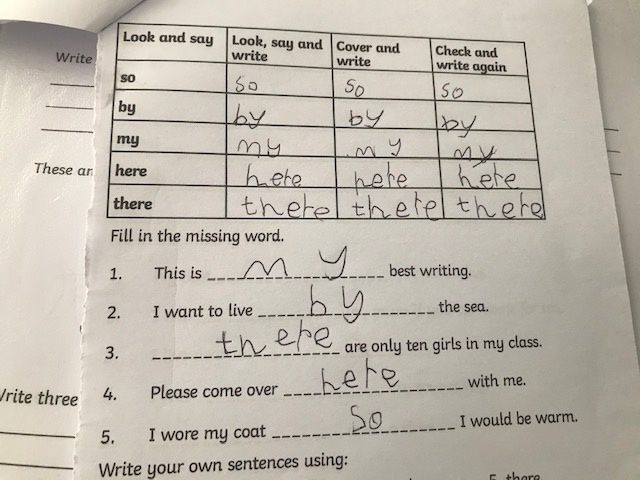 Look and say Look, say and write Cover and write Check and write again
so so so so
by by by by
my my my my
here here here here
there there there there
Fill in the missing word.
1. This is my best writing.
2. I want to live by the sea.
3. there are only ten girls in my class.
4. Please come over here with me.
5. I wore my coat so I would be warm.
Write your own sentences using:
5. there
Write
These
Write three